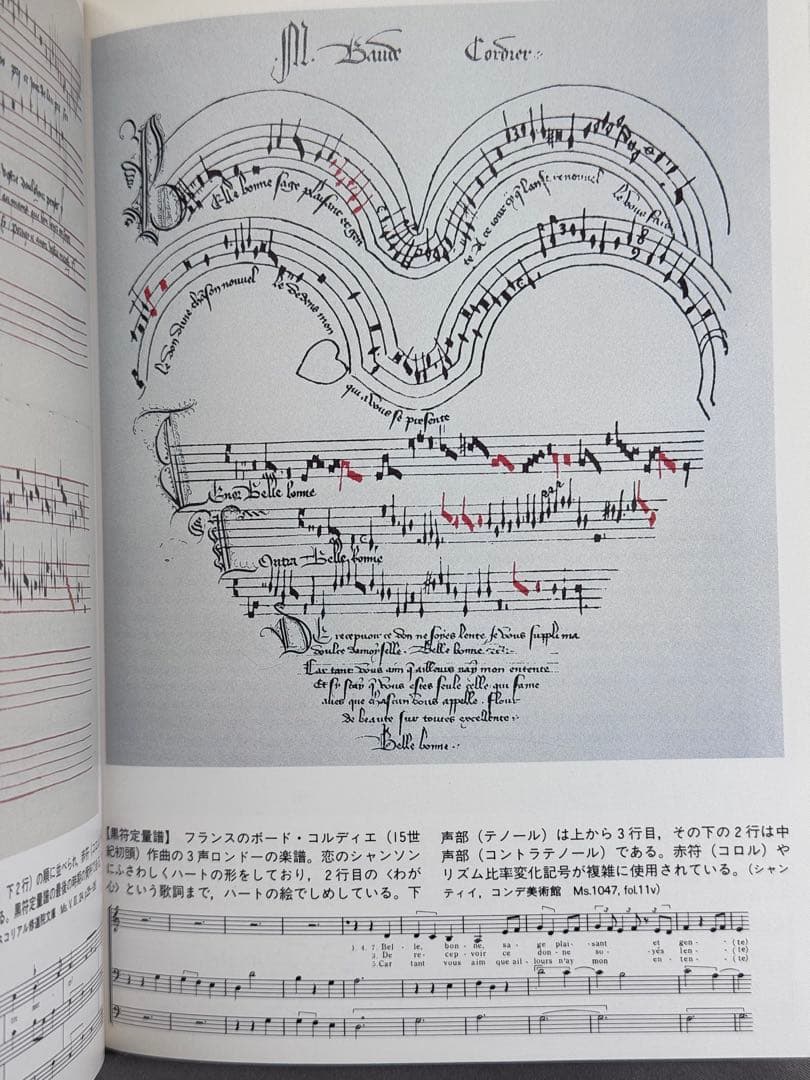 M. Baude Cordier
Belle bonne sage plaisant et gen
te A ce jour q̄ lan se renouvel
le vous fais
le don dune chāson nouvel
le dedens mon
qui a vous se presente
Tenor Belle bonne
Contra Belle bonne
De recepuoir ce don ne soyes lente Je vous suppli ma
doulce damoyselle. Belle bonne
Car tant vous aim q̄ aillours nay mon entente
Et sy scay q̄ vous estes seule celle qui fame
aves que chascun vous appelle. Flour
de beaute sur toutes excellente.
Belle bonne.
【黒符定量譜】 フランスのボード・コルディエ（15世
紀初頭）作曲の3声ロンドーの楽譜。恋のシャンソン
にふさわしくハートの形をしており，2行目の〈わが
心〉という歌詞まで，ハートの絵でしめしている。下
声部（テノール）は上から3行目，その下の2行は中
声部（コントラテノール）である。赤符（コロル）や
リズム比率変化記号が複雑に使用されている。（シャン
ティイ，コンデ美術館 Ms.1047, fol.11v）
下2行）の順に並べられ，赤符
る。黒符定量譜の最後の時期の
スコリアル修道院文庫
1. 4. 7. Bel - le, bon - ne, sa - ge plai - sant et gen - (te)
3. De re - cep - voir ce don - ne so - yés len - (te)
5. Car tant vous aim que ail - lours n'ay mon en - ten - (te)